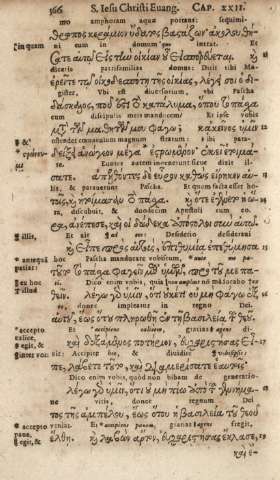 366 S. Iesu Christi Euang. CAP. XXII.
mo amphoram aquæ portans: sequimi-
θρωπος κεράμιον ὕδατος βαστάζων ἀκολουθή-
in quam
ni eum in domum quam intrat. Et
σατε αὐτῷ εἰς τὴν οἰκίαν οὗ εἰσπορεύεται.
dicetis patrifamilias domus: Dicit tibi Ma-
ἐρεῖτε τῷ οἰκοδεσπότῃ τῆς οἰκίας, λέγει σοι ὁ δι-
gister, Vbi est diuersorium, vbi Pascha
δάσκαλος, ποῦ ἐστι τὸ κατάλυμα, ὅπου τὸ πάσχα
cum discipulis meis manducem? Et ipse vobis
μετὰ τῶν μαθητῶν μου φάγω; κἀκεῖνος ὑμῖν
ostendet cœnaculum magnum stratum: ibi para-
δείξει ἀνώγεον μέγα ἐστρωμένον. ἐκεῖ ἑτοιμά-
te. Euntes autem inuenerunt sicut dixit il-
σατε. ἀπελθόντες δὲ εὗρον καθὼς εἴρηκεν αὐ-
lis, & parauerunt Pascha. Et quum facta esset ho-
τοῖς, καὶ ἡτοίμασαν τὸ πάσχα. καὶ ὅτε ἐγένετο ἡ ὥ-
ra, discubuit, & duodecim Apostoli cum eo.
ρα, ἀνέπεσε, καὶ οἱ δώδεκα ἀπόστολοι σὺν αὐτῷ.
illis,
Et ait Desiderio desideraui
καὶ εἶπε πρὸς αὐτούς, ἐπιθυμίᾳ ἐπεθύμησα
antequã
patiar:
hoc Pascha manducare vobiscum,
τοῦτο τὸ πάσχα φαγεῖν μεθ' ὑμῶν, πρὸ τοῦ με πα-
ex hoc
Dico enim vobis, quia non manducabo
θεῖν. λέγω γὰρ ὑμῖν, ὅτι οὐκέτι οὐ μὴ φάγω ἐξ
donec impleatur in regno Dei.
αὐτοῦ, ἕως ὅτου πληρωθῇ ἐν τῇ βασιλείᾳ τοῦ θεοῦ.
accepto
calice,
egit, &
inter vos:
Et accipiens calicem, gratias agens di-
καὶ δεξάμενος ποτήριον, εὐχαριστήσας εἶ-
xit: Accipite hoc, & diuidite
πε, λάβετε τοῦτο, καὶ διαμερίσατε ἑαυτοῖς.
Dico enim vobis, quod non bibam de generatio-
λέγω γὰρ ὑμῖν, ὅτι οὐ μὴ πίω ἀπὸ τοῦ γεννήμα-
ne vitis, donec regnum Dei.
τος τῆς ἀμπέλου, ἕως ὅτου ἡ βασιλεία τοῦ θεοῦ
accepto
pane,
egit, &
veniat. Et accipiens panem gratias agens fregit,
ἔλθῃ. καὶ λαβὼν ἄρτον, εὐχαριστήσας ἔκλασε,
καὶ ἔ-